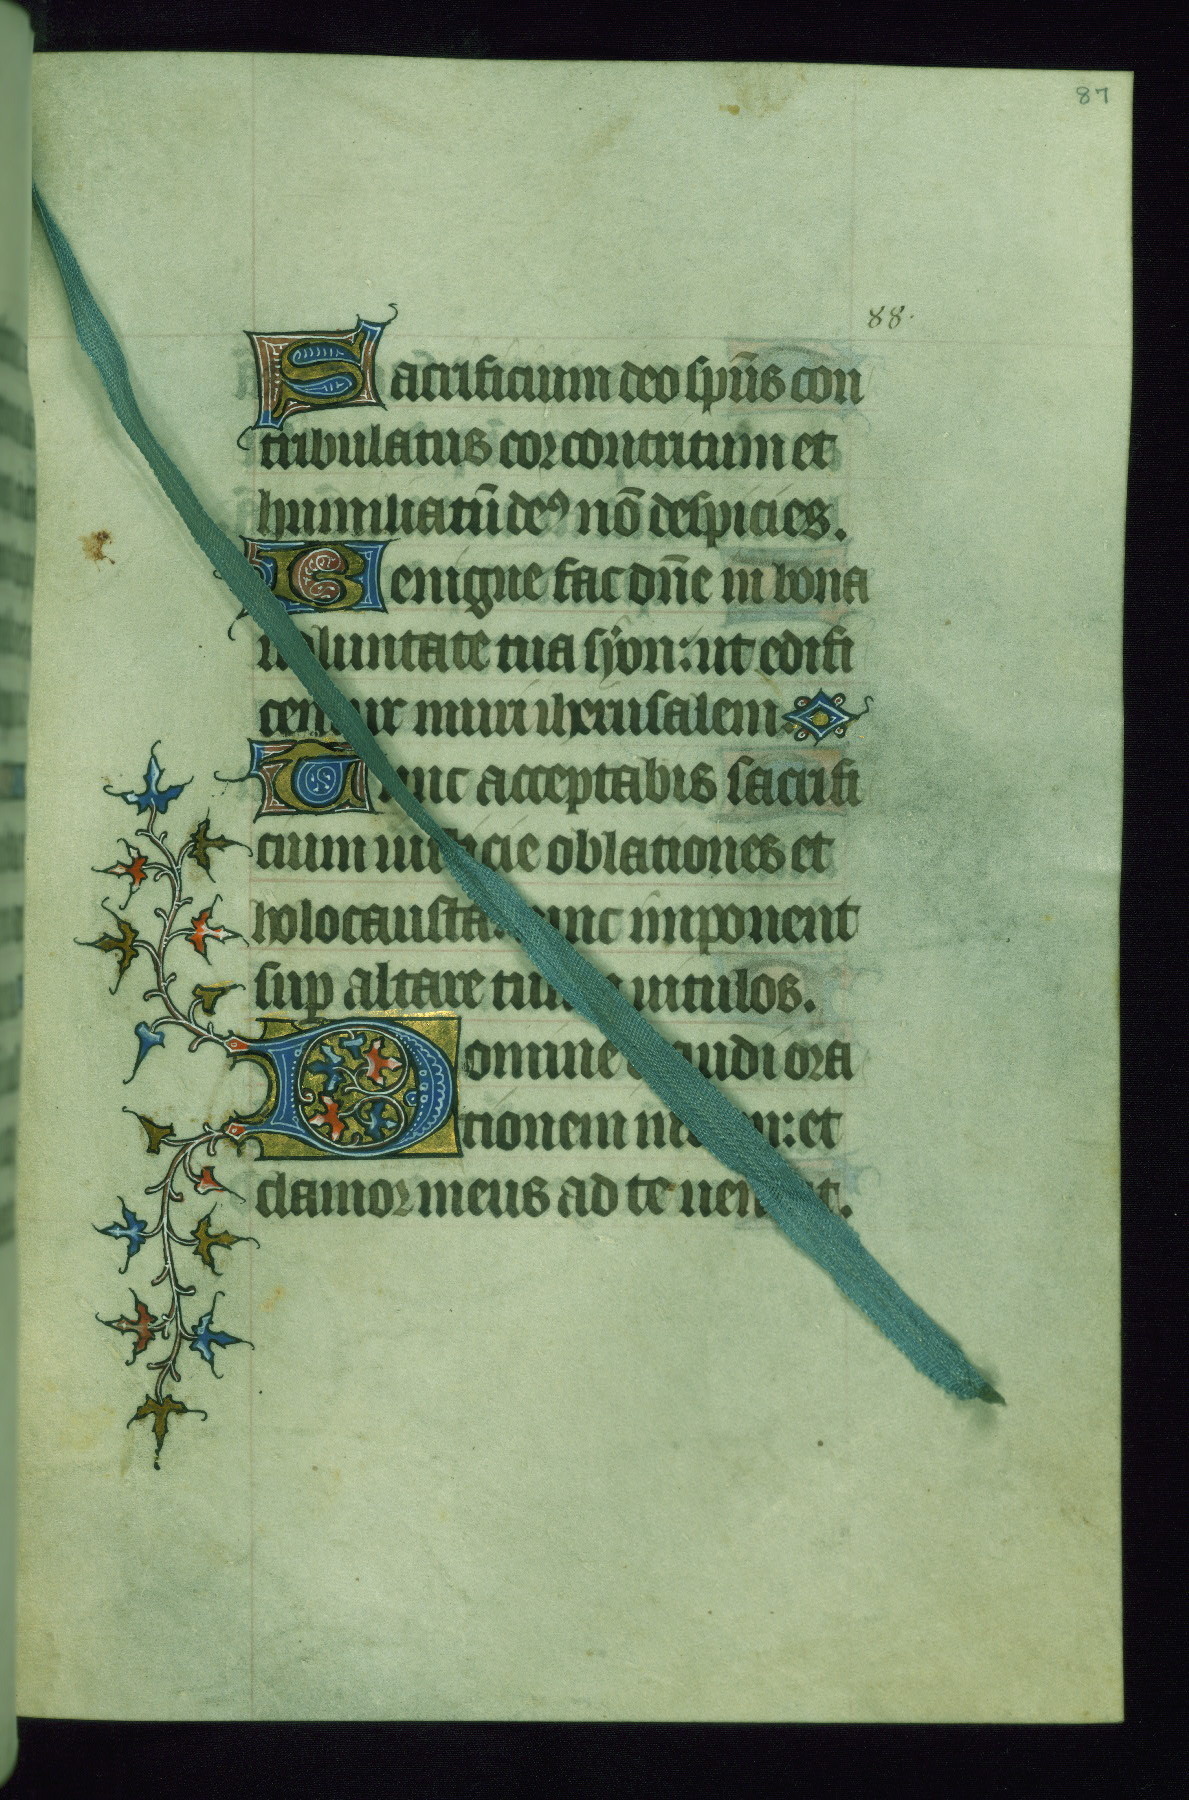 87
88.
Sacrificium deo sp̄us con
tribulatus cor contritum et
humiliatū deꝰ nō despicies.
Benigne fac dn̄e in bona
uoluntate tua syon: ut edifi
centur muri iherusalem
Tunc acceptabis sacrifi
cium iusticie oblationes et
holocausta: tunc imponent
suꝑ altare tuum uitulos.
Domine exaudi ora
tionem meam: et
clamor meus ad te ueniat.